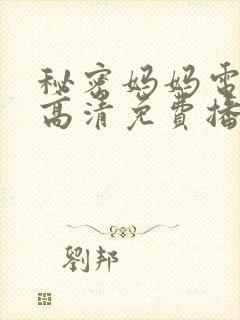 秘密妈妈电
高清免費播
劉邦